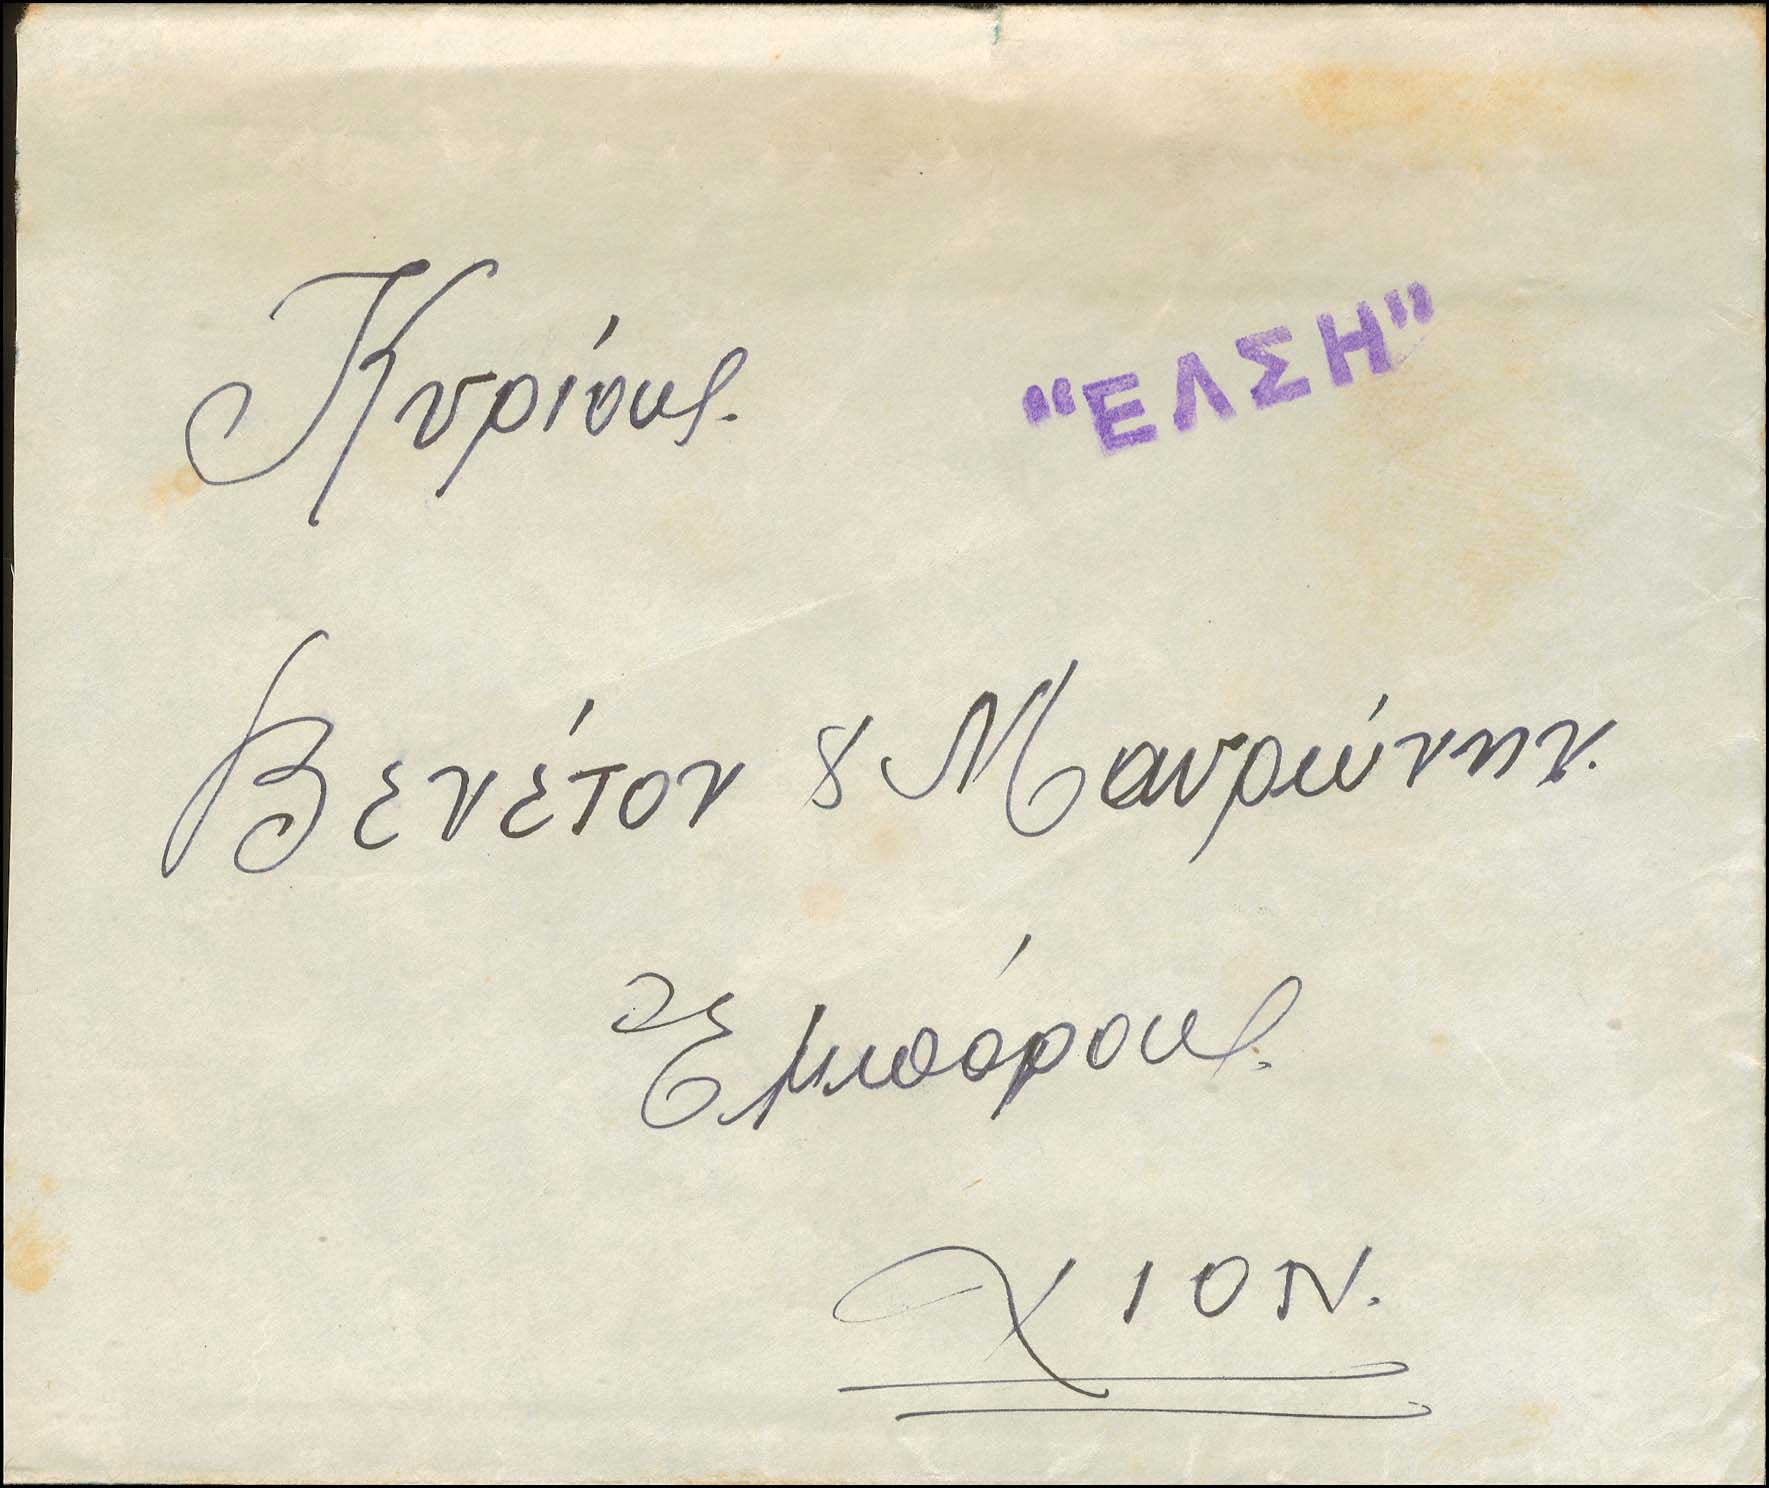 Κυρίους.
"ΕΛΣΗ"
Βενέτον & Μαυριώνην.
Ἐμπόρους.
ΧΙΟΝ.